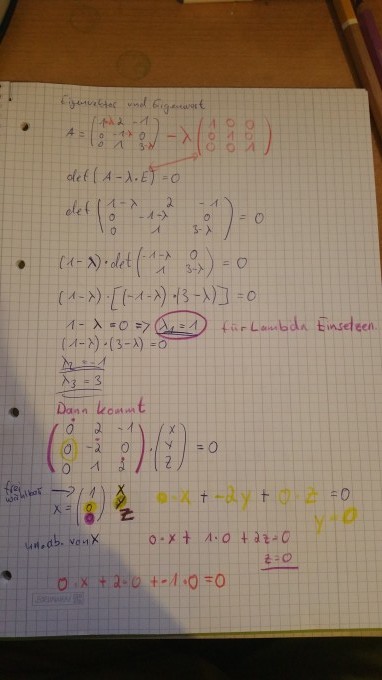 Eigenvektor und Eigenwert
A = (1-λ 2 -1
0 -1-λ 0
0 1 3-λ) - λ (1 0 0
0 1 0
0 0 1)
det (A - λ·E) = 0
det (1-λ 2 -1
0 -1-λ 0
0 1 3-λ) = 0
(1-λ) · det (-1-λ 0
1 3-λ) = 0
(1-λ) · [(-1-λ) · (3-λ)] = 0
1 - λ = 0 => λ₁ = 1 für Lambda Einsetzen.
(1-λ) · (3-λ) = 0
λ₂ = -1
λ₃ = 3
Dann kommt
(0 2 -1
0 -2 0
0 1 2) · (x
y
z) = 0
frei wählbar → x = (1
0
0) x
y
z
0·x + -2y + 0·z = 0
y = 0
unab. von x 0·x + 1·0 + 2z = 0
z = 0
0·x + 2·0 + -1·0 = 0